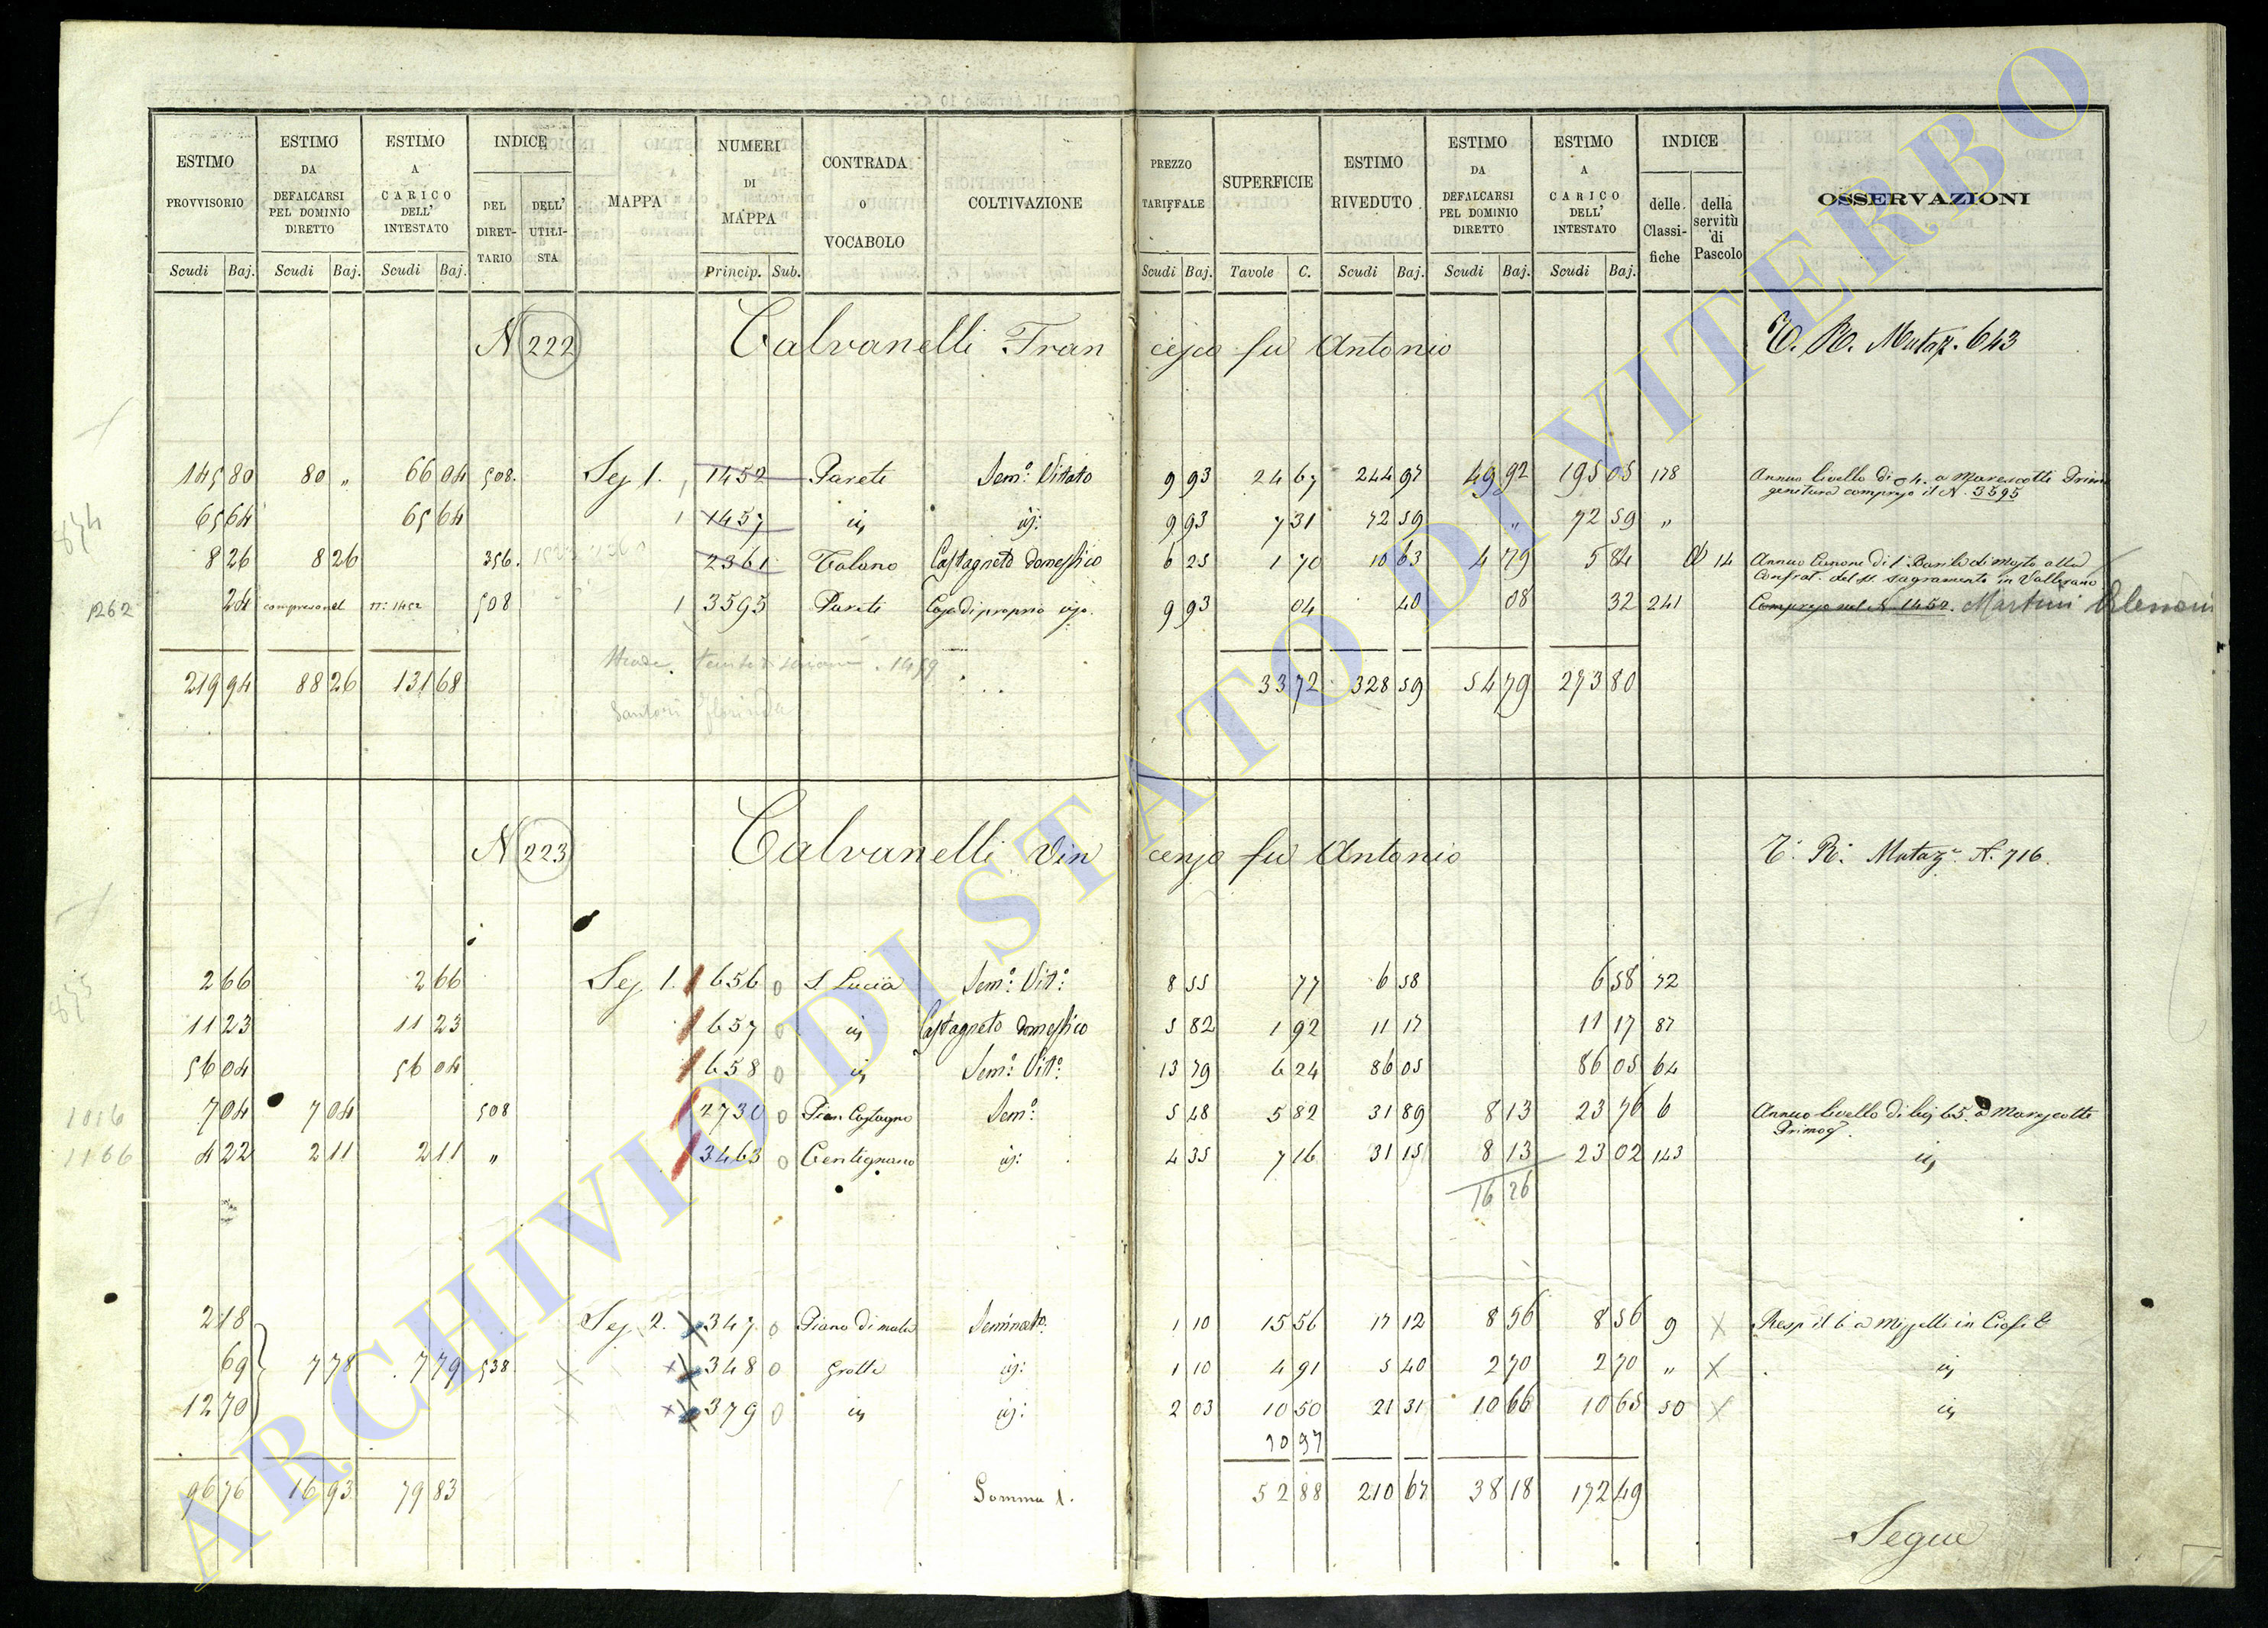 ESTIMO PROVVISORIO | ESTIMO DA DEFALCARSI PEL DOMINIO DIRETTO | ESTIMO A CARICO DELL' INTESTATO | INDICE DEL DIRETTARIO | DELL' UTILISTA | MAPPA | NUMERI DI MAPPA | CONTRADA O VOCABOLO | COLTIVAZIONE | PREZZO TARIFFALE | SUPERFICIE | ESTIMO RIVEDUTO | ESTIMO DA DEFALCARSI PEL DOMINIO DIRETTO | ESTIMO A CARICO DELL' INTESTATO | INDICE delle Classifiche | della servitù di Pascolo | OSSERVAZIONI
Scudi Baj. Scudi Baj. Scudi Baj. Princip. Sub. Scudi Baj. Tavole C. Scudi Baj. Scudi Baj. Scudi Baj.
N 222 Calvanelli Francesco fu Antonio T. R. Mutaz. 643
145 80 80 „ 66 04 508. Sez 1. 1452 Pareti Sem.o Vitato 9 93 24 67 244 97 49 92 195 05 178 Annuo livello di 4. a Marescotti Primo
genitura compreso il N. 3595
65 64 65 64 1 1457 id 9 93 7 31 72 59 „ 72 59 „
8 26 8 26 356. 2361 Talano Castagneto domestico 6 25 1 70 10 63 4 79 5 84 14 Annuo Canone di 1 Barile di mosto alla
Confrat. del SS. Sagramento in Vallerano
1262 24 compreso nel n.° 1452 508 1 3595 Pareti Casa di proprio uso. 9 93 04 40 08 32 241 Compreso nel N. 1452. Martini
1459
219 94 88 26 131 68 33 72 328 59 54 79 273 80
Santori
N 223 Calvanelli Vincenzo fu Antonio T. R. Mutaz. N. 716.
2 66 2 66 Sez 1. 656 0 S. Lucia Sem.o Vit.o 8 55 77 6 58 6 58 72
11 23 11 23 657 0 id Castagneto domestico 5 82 1 92 11 17 11 17 87
56 04 56 04 658 0 id Sem.o Vit.o 13 79 6 24 86 05 86 05 64
1016 7 04 7 04 508 2730 0 Pian Castagno Sem.o 5 48 5 82 31 89 8 13 23 76 6 Annuo livello di baj 65. a Marescotti
Primog.
1166 4 22 2 11 2 11 „ 3463 0 Centignano id: 4 35 7 16 31 15 8 13 23 02 143 id
16 26
2 18 Sez. 2. 347 0 Piano di mola Seminato. 1 10 15 56 17 12 8 56 8 56 9
69 7 78 7 79 538. 348 0 Grotte id: 1 10 4 91 5 40 2 70 2 70 „ id
12 70 379 0 id id: 2 03 10 50 21 31 10 66 10 65 50 id
10 97
96 76 16 93 79 83 Somma 1. 52 88 210 67 38 18 172 49
Segue
ARCHIVIO DI STATO DI VITERBO